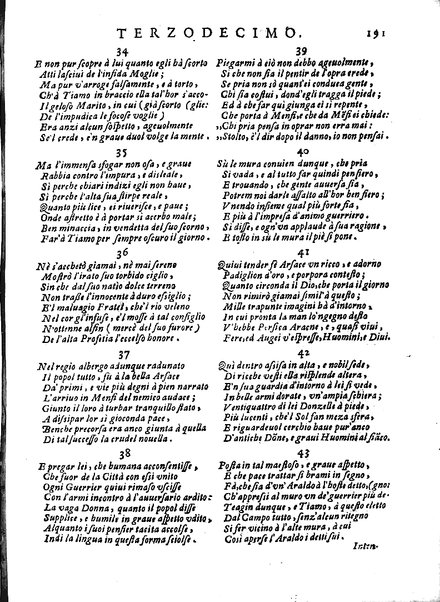 TERZODECIMO. 191
34
E non pur scopre à lui quanto egli hà scorto
Atti lascivi de l'infida Moglie;
Ma pur v'arroge falsamente, e à torto,
Ch'à Tiamo in braccio ella tal'hor s'acco-
Il geloso Marito, in cui (già scorto (glie:
De l'impudica le focose voglie)
Era anzi alcun sospetto, ageuolmente
Se'l crede, e'n graue duol volge la mente.
35
Ma l'immensa sfogar non osa, e graue
Rabbia contro l'impura, e disleale,
Sì perche chiari indizi egli non haue,
Sì perche l'alta sua stirpe reale,
Quanto più lice, ei riuerisce, e paue;
Onde astretto è à portar sì acerbo male;
Ben minaccia, in vendetta del suo scorno,
Far'à Tiamo per sempre oscuro il giorno.
36
Nè s'acchetò giamai, nè mai sereno
Mostrò l'irato suo torbido ciglio,
Sin che dal suo natio dolce terreno
Non trasse l'innocente à duro essiglio;
E'l maluagio Fratel, che'l rio veleno
Nel cor gl'infuse, e'l mosse à tal consiglio
N'ottenne alfin (mercè del suo furore)
De l'alta Profitia l'eccelso honore.
37
Nel regio albergo adunque radunato
Il popol tutto, fù à la bella Arsace
Da' primi, e vie più degni à pien narrato
L'arriuo in Menfi del nemico audace;
Giunto il loro à turbar tranquillo stato,
A dissipar lor sì gioconda pace,
Benche precorsa era anco giunta à quella
Di tal successo la crudel nouella.
38
E pregar lei, che humana acconsentisse,
Che fuor de la Città con essi vnito
Ogni Guerrier quiui rimaso vscisse
Con l'armi incontro à l'auuersario ardito:
La vaga Donna, quanto il popol disse
Supplice, e humile in graue aspetto vdito,
Alquanto i suoi pensier tacita accolse,
Indi la lingua in questa forma sciolse.
39
Piegarmi à ciò non debbo ageuolmente,
Sì che non sia il pentir de l'opra erede,
Se pria non sò quant'ei conduca gente,
Chi sia costui, dond'egli tragga il piede;
Ed à che far quì giunga ei sì repente,
Che porta à Menfi, e che da Mēfi ei chiede:
„Chi pria pensa in oprar non erra mai:
„Stolto, è'l dir dopo il danno, io non pensai.
40
Sù le mura conuien dunque, che pria
Si vada, e al tutto far quindi pensiero,
E trouando, che gente auuersa sia,
Potrem noi darle assalto all'hor ben fiero;
Vnendo insieme qual più forte sia,
E più à l'impresa d'animo guerriero.
Sì disse, e ogn'vn applaude à sua ragione,
E tosto in sù le mura il piè si pone.
41
Quiui tender fè Arsace vn ricco, e adorno
Padiglion d'oro, e porpora contesto;
Quanto circonda il Dio, che porta il giorno
Non rimirò giamai simil'à questo;
Mille trapunte imagini hà d'intorno,
In cui pronta la man lo'ngegno desto
V'hebbe Persica Aracne, e, quasi viui,
Fere, ed Augei v'espresse, Huomini, e Diui.
42
Quì dentro assisa in alta, e nobil sede,
Di ricche vesti ella risplende altera,
E'n sua guardia d'intorno à lei si vede,
In belle armi dorate, vn'ampia schiera;
Ventiquattro di lei Donzelle à piede,
Più lucenti, che'l Sol fan mezza sfera;
E riguardeuol cerchio haue pur'anco
D'antiche Dōne, e graui Huomini al fiāco.
43
Posta in tal maestoso, e graue aspetto,
E che pace trattar si brami in segno,
Fà, che sia d'vn' Araldo à l'hoste detto, (gno:
Ch'appressi al muro vn de' guerrier più de-
Teagin dunque, e Tiamo, à questo eletto
Dal Campo tutto, senz'alcun ritegno
Si fer vicino à l'alte mura, à cui
Così aprese l'Araldo i detti sui.
Inten-